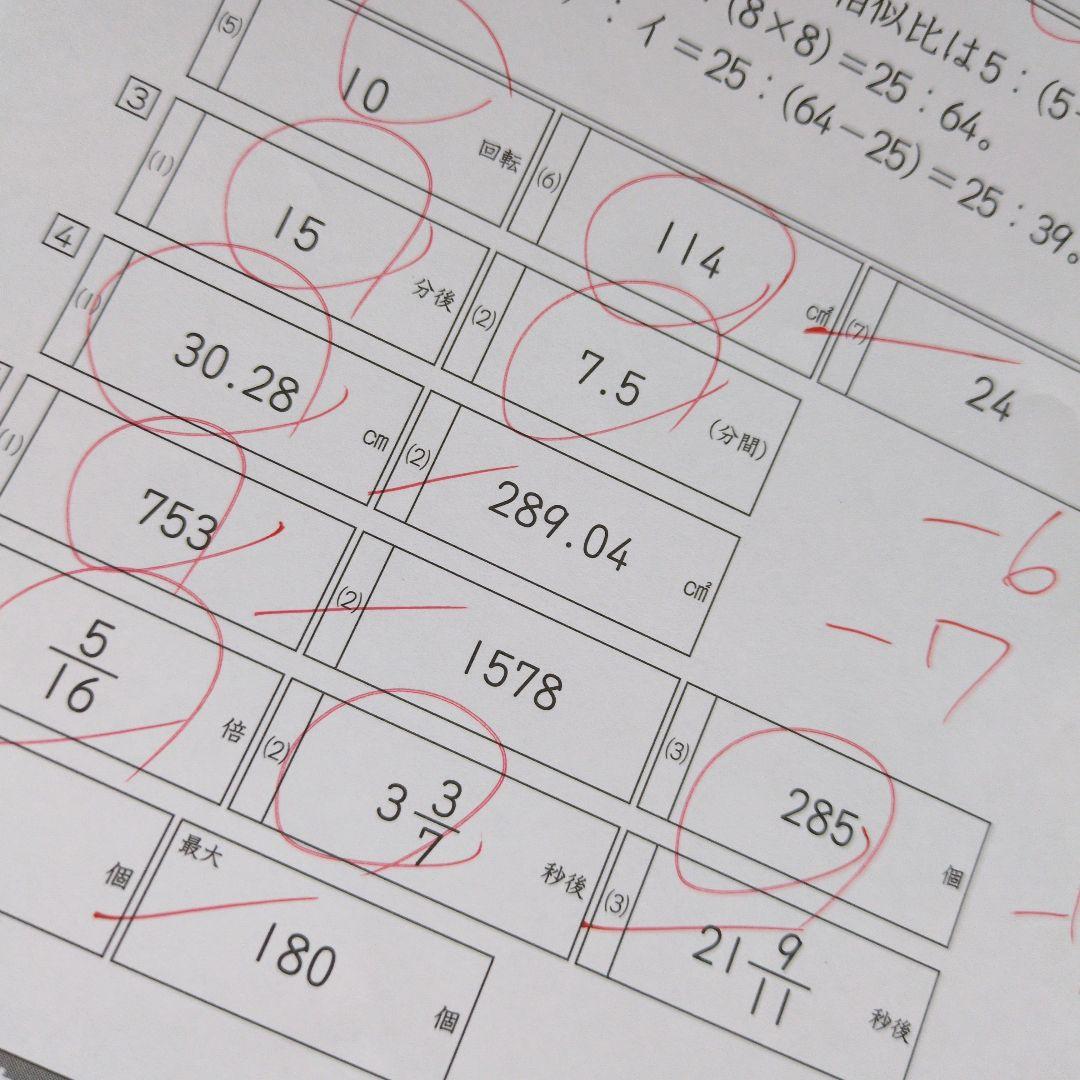 相似比は5：(5
(8×8)＝25：64。
：イ＝25：(64－25)＝25：39。
(5) 10 回転
(6) 114 cm²
(7) 24
3
(1) 15 分後
(2) 7.5 (分間)
4
(1) 30.28 cm
(2) 289.04 cm²
(1) 753
(2) 1578
(3) 285 個
5/16 倍
(2) 3 3/7 秒後
(3) 21 9/11 秒後
個
最大 180 個
－6
－17